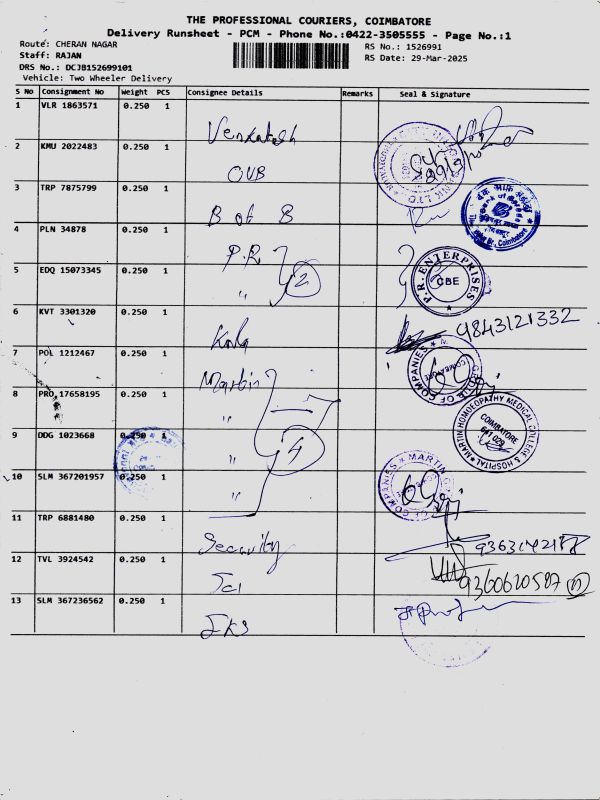 THE PROFESSIONAL COURIERS, COIMBATORE
Delivery Runsheet - PCM - Phone No.:0422-3505555 - Page No.:1
Route: CHERAN NAGAR
RS No.: 1526991
Staff: RAJAN
RS Date: 29-Mar-2025
DRS No.: DCJB152699101
Vehicle: Two Wheeler Delivery
S No Consignment No Weight PCS Consignee Details Remarks Seal & Signature
1 VLR 1863571 0.250 1 Venkatesh
2 KMU 2022483 0.250 1 OUB
3 TRP 7875799 0.250 1 B of B
4 PLN 34878 0.250 1 P.R
P.R. ENTERPRISES
CBE
5 EDQ 15073345 0.250 1 " 2
6 KVT 3301320 0.250 1 Kala 9843121332
7 POL 1212467 0.250 1 Martin
GROUP OF COMPANIES
8 PRO 17658195 0.250 1 "
MARTIN HOMOEOPATHY MEDICAL COLLEGE & HOSPITAL
COIMBATORE
641 029
9 DDG 1023668 0.250 1 " 4
10 SLM 367201957 0.250 1 "
MARTIN GROUP OF COMPANIES
11 TRP 6881480 0.250 1 Security
12 TVL 3924542 0.250 1 9360620587
13 SLM 367236562 0.250 1